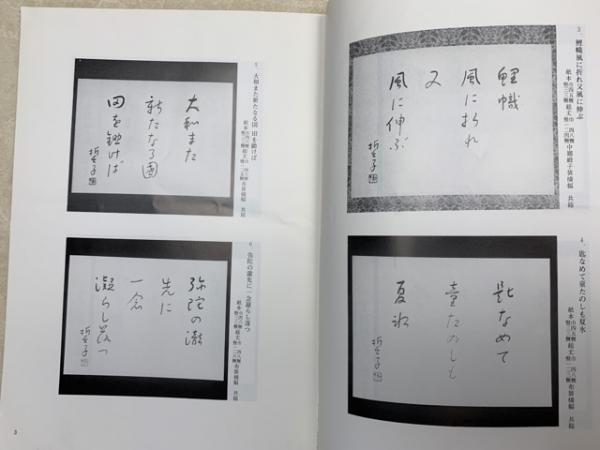 3、鯉幟風に折れ又風に伸ぶ
鯉幟
風に折れ
又
風に伸ぶ
誓子
4、匙なめて童たのしも夏氷
匙なめて
童たのしも
夏氷
誓子
5、大和また新たなる国田を鋤けば
大和また
新たなる国
田を鋤けば
誓子
6、弥陀の瀧先に一念凝らし落つ
弥陀の瀧
先に
一念
凝らし落つ
誓子
3